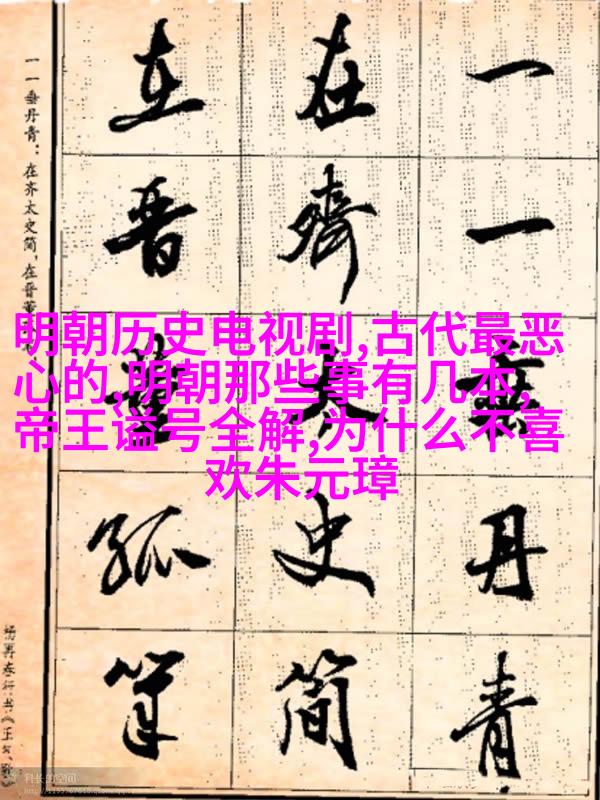 明朝历史电视剧,古代最恶
心的,明朝那些事有几本,
帝王谥号全解,为什么不喜
欢朱元璋
一一垂丹青
在齊太史简
在晋董狐筆
一一垂丹青：在齐太史简，在晋董
杨再春行书《正气
科长的空间